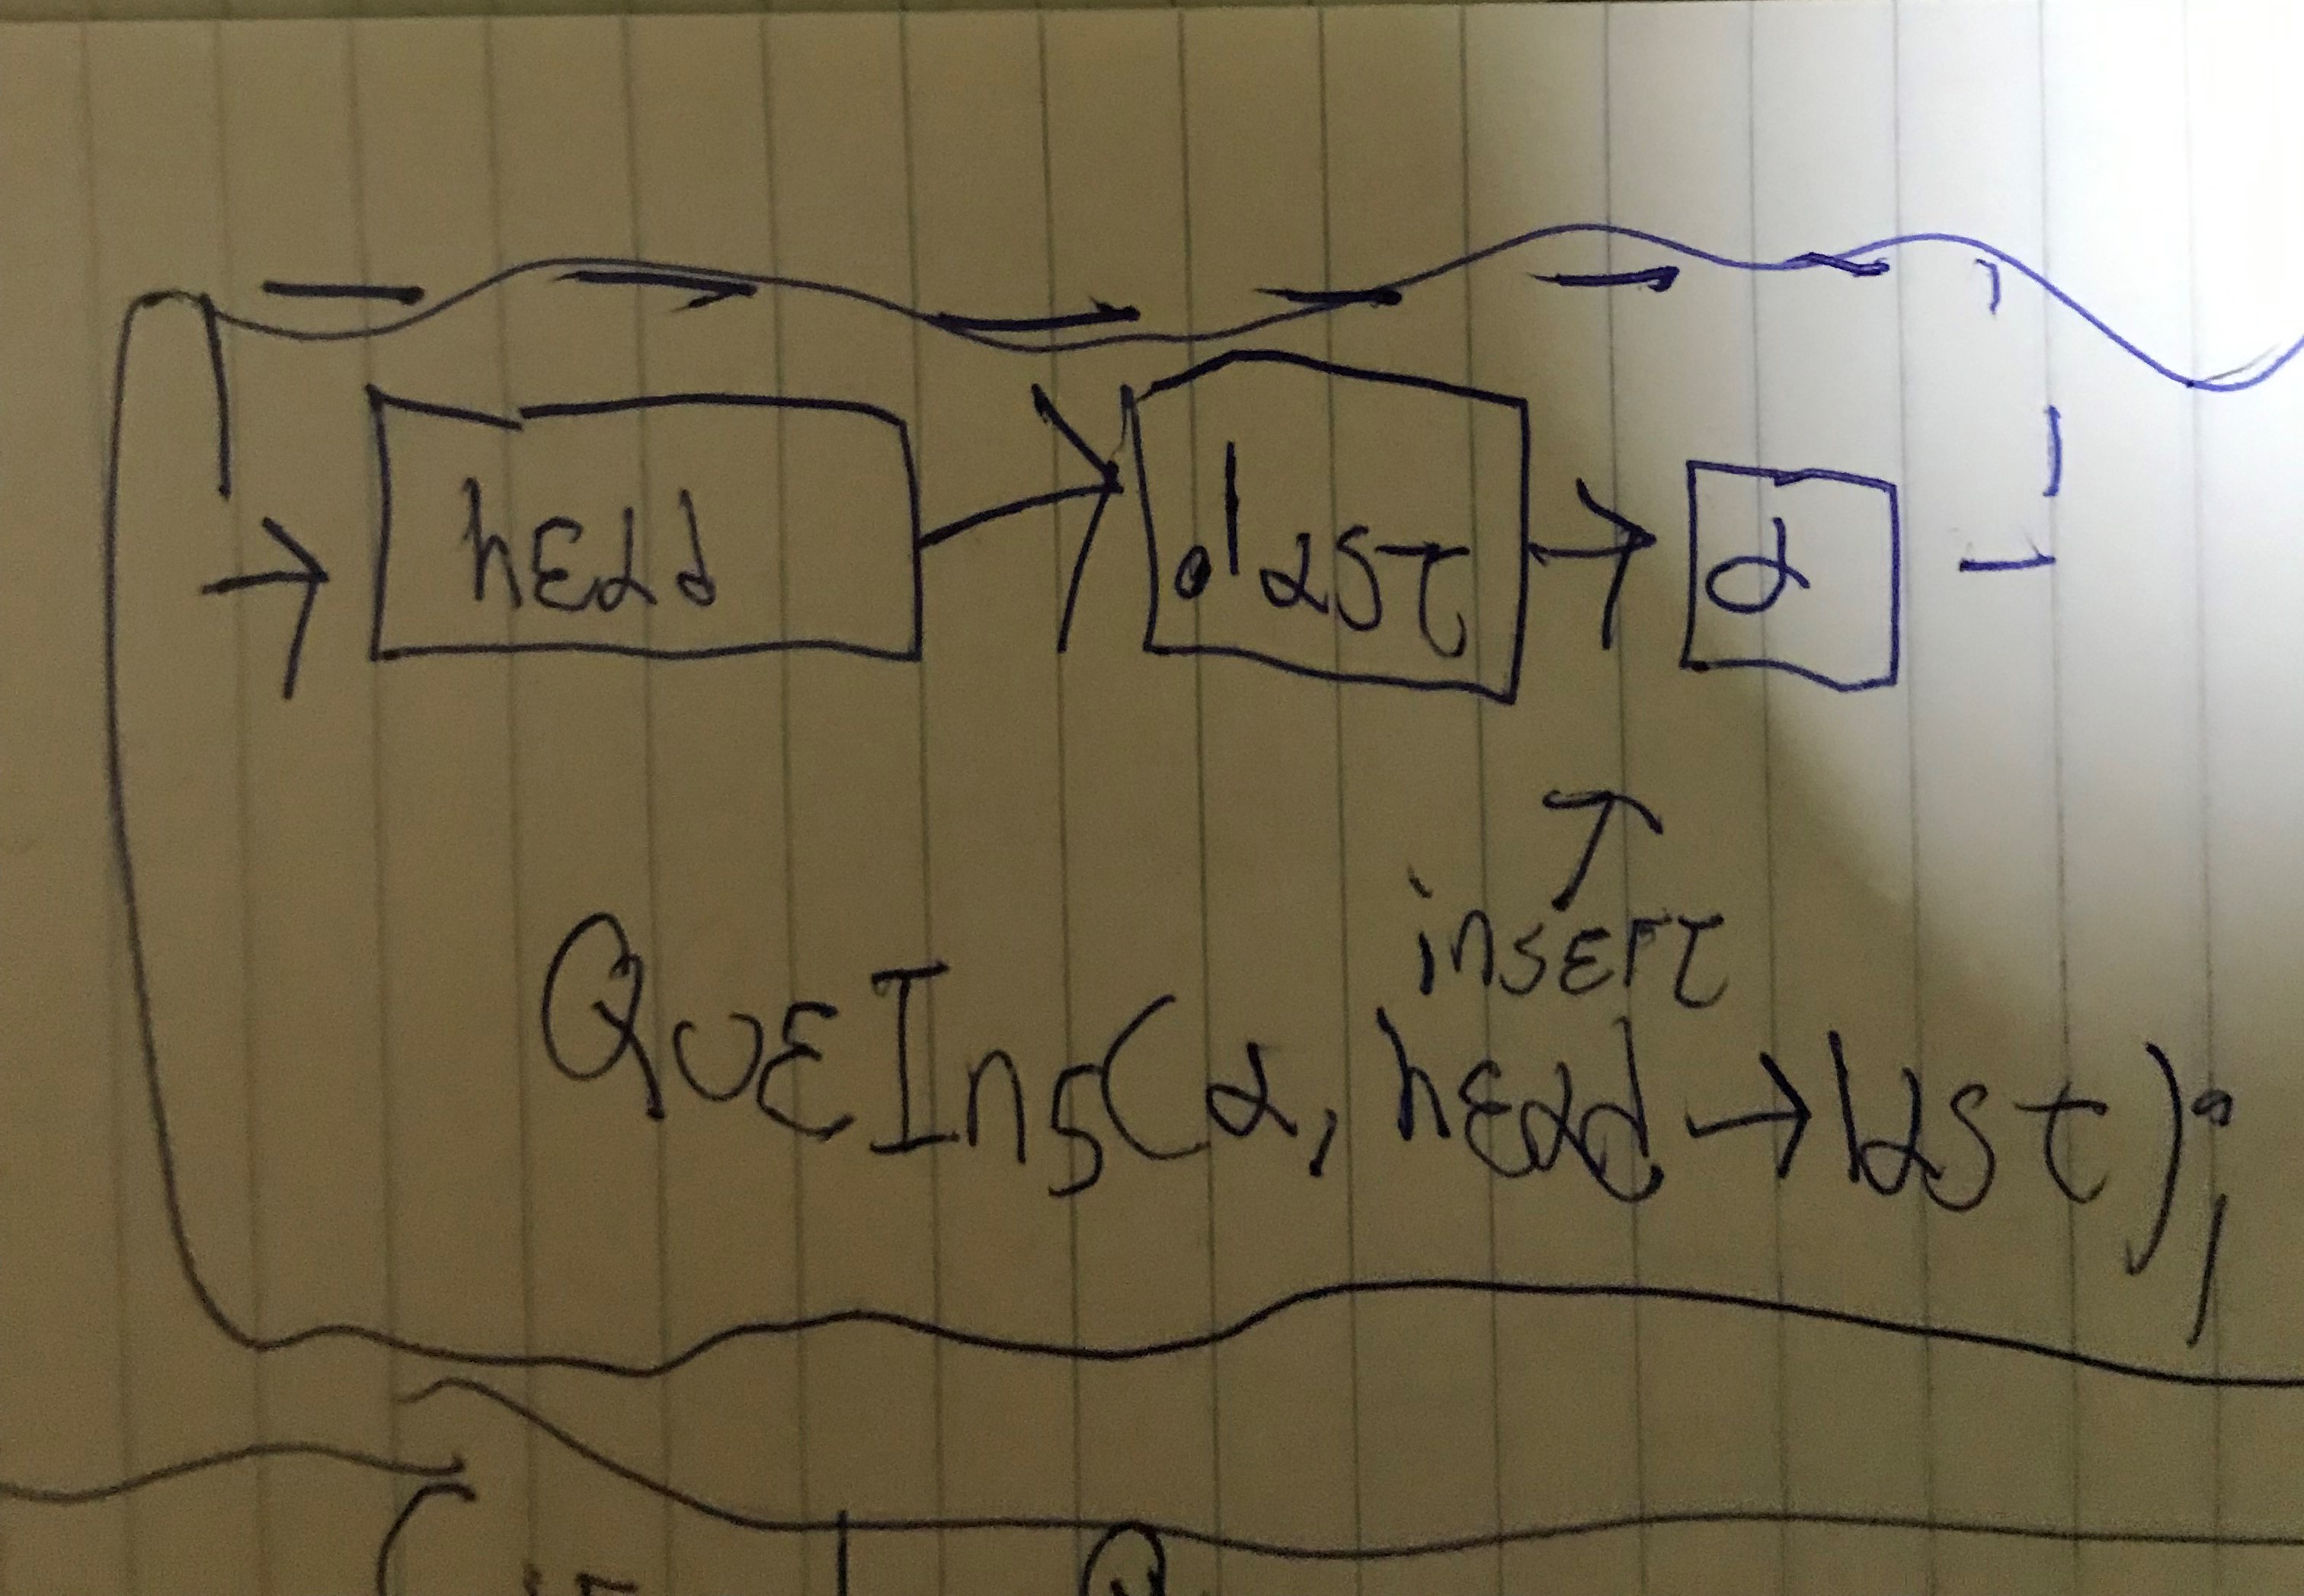 head
.last
a
insert
QueIns(a, head→last);